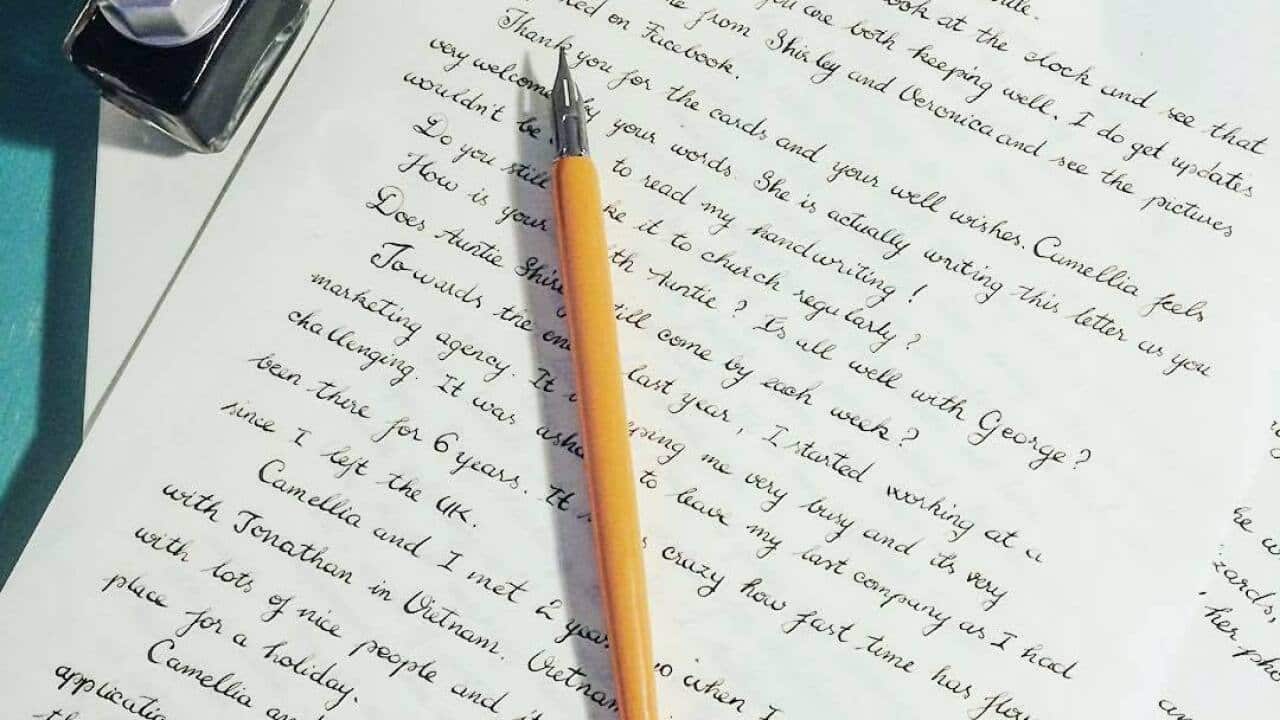 look at the clock and see that
you are both keeping well. I do get updates
from Shirley and Veronica and see the pictures
on Facebook.
Thank you for the cards and your well wishes. Camellia feels
very welcome by your words. She is actually writing this letter as you
wouldn't be to read my handwriting !
Do you still it to church regularly ?
How is your Auntie ? Is all well with George ?
Does Auntie still come by each week ?
Towards the last year, I started working at a
marketing agency. It me very busy and its very
challenging. It was to leave my last company as I had
been there for 6 years. It crazy how fast time has
since I left the UK.
Camellia and I met 2 when I
with Jonathan in Vietnam. Vietnam
with lots of nice people and
place for a holiday.
Camellia